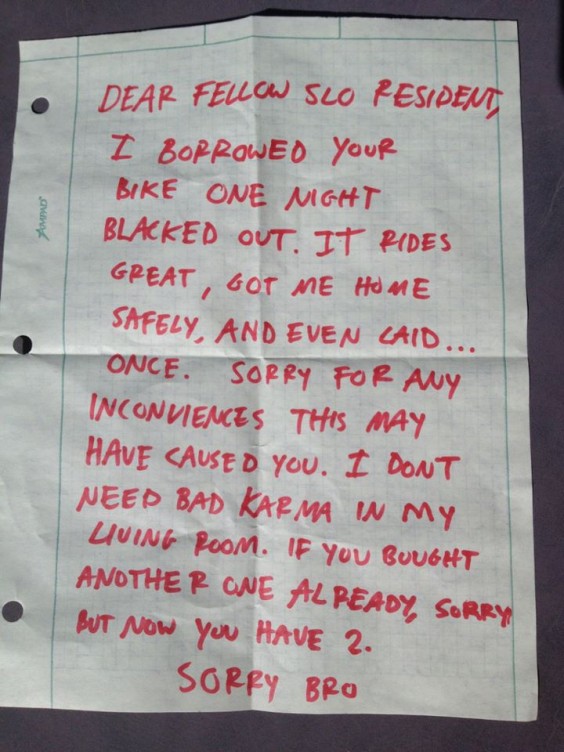 DEAR FELLOW SLO RESIDENT,
I BORROWED YOUR
BIKE ONE NIGHT
BLACKED OUT. IT RIDES
GREAT, GOT ME HOME
SAFELY, AND EVEN LAID...
ONCE. SORRY FOR ANY
INCONVIENCES THIS MAY
HAVE CAUSED YOU. I DONT
NEED BAD KARMA IN MY
LIVING ROOM. IF YOU BOUGHT
ANOTHER ONE ALREADY, SORRY
BUT NOW YOU HAVE 2.
SORRY BRO